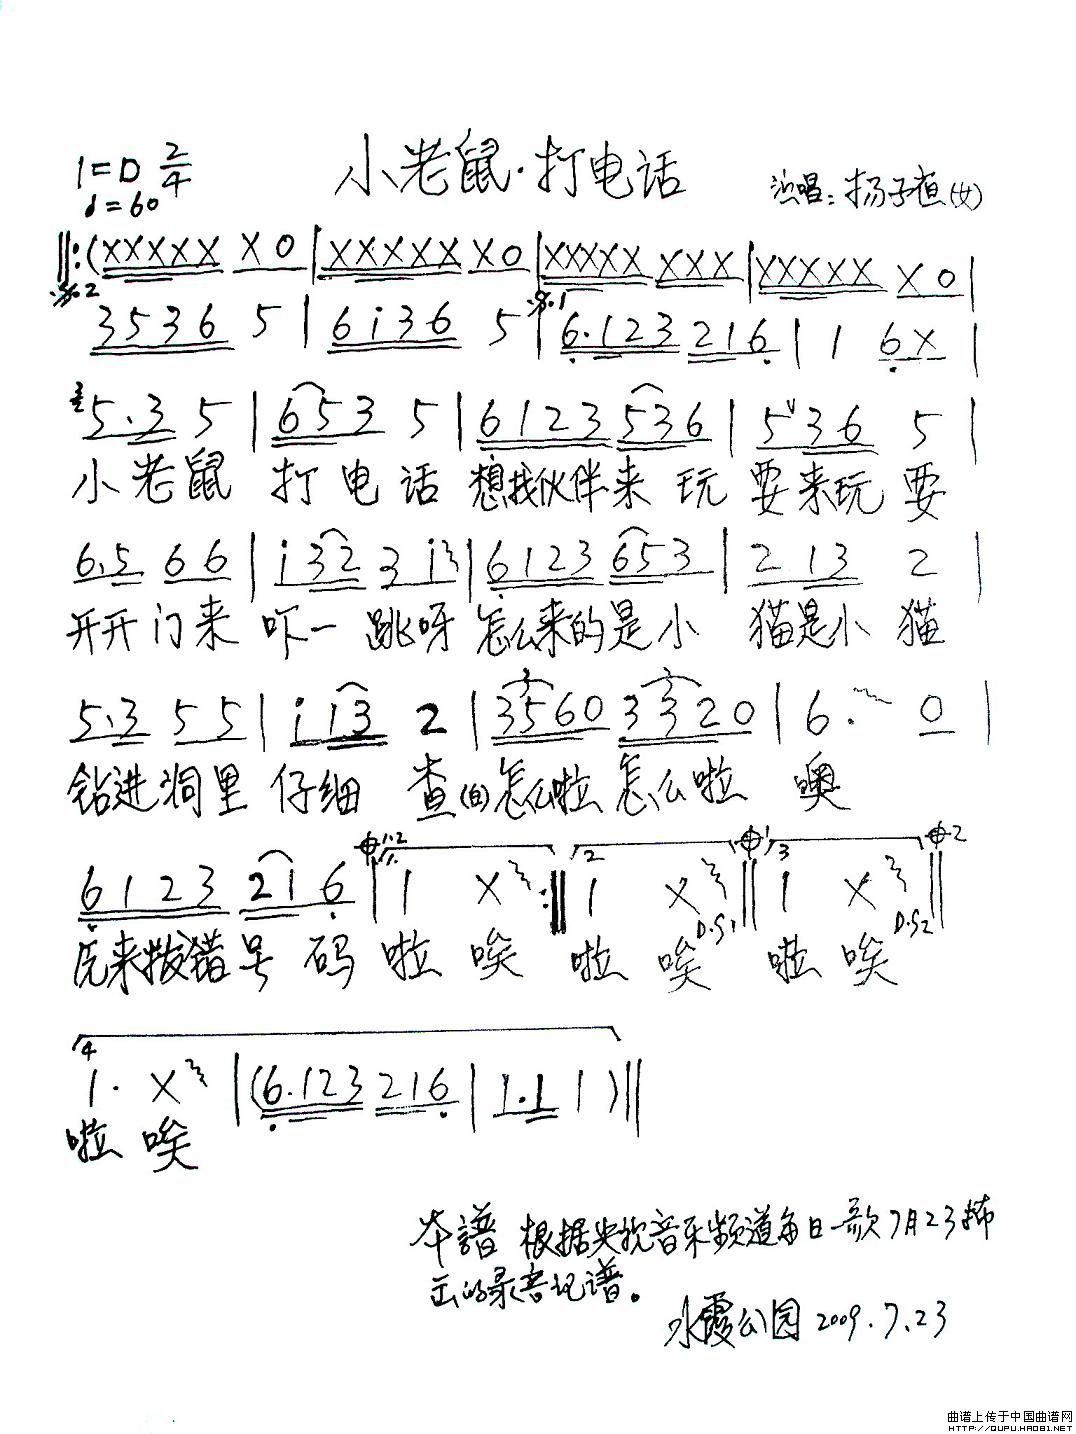 小老鼠·打电话
1=D 2/4
♩=60
演唱：杨子直(女)
‖:(XXXXX X 0 | XXXXX X 0 | XXXXX XXX | XXXXX X 0 |
3536 5 | 6i36 5 | 6.123 216 | 1 6X |
5.3 5 | 653 5 | 6123 536 | 5 36 5 |
小老鼠 打电话 想找伙伴来 玩 耍来玩 耍
6.5 66 | i32 3 i3 | 6123 653 | 2 13 2 |
开开门来 吓一 跳呀 怎么来的是小 猫是小 猫
5.3 55 | i i3 2 | 3560 3320 | 6. 0 |
钻进洞里 仔细 查(白)怎么啦 怎么啦 噢
1.2 1 2 3 2
6123 216 ‖ 1 X :‖ 1 X ‖ 1 X ‖
D.S1 D.S2
原来拨错号 码 啦 唉 啦 唉 啦 唉
4
1. X | (6.123 216 | 1.1 1 ) ‖
啦 唉
本譜 根据央视音乐频道每日一歌7月23播
出的录音记谱。
水霞公园 2009.7.23
曲谱上传于中国曲谱网
HTTP://QUPU.HAO81.NET